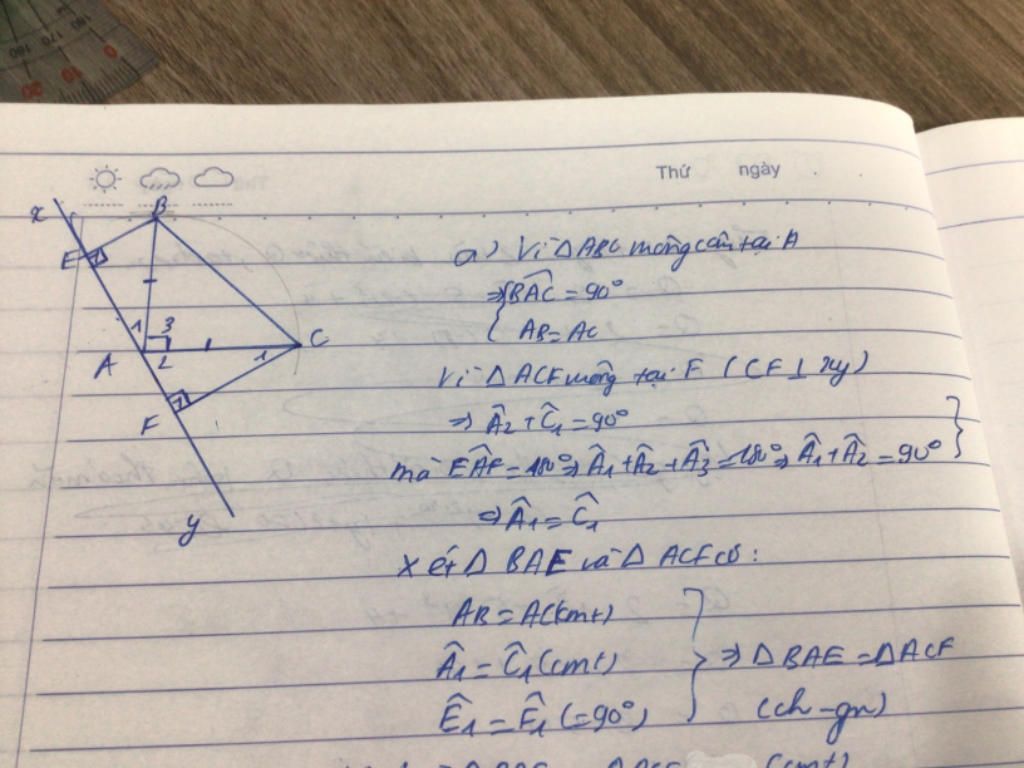 Thứ ngày
x
B
E
1 3
A 2 1 C
F 1
y
a) Vì ΔABC vuông cân tại A
⇒ { BAĈ = 90°
AB = AC
Vì ΔACF vuông tại F (CF ⊥ xy)
⇒ Â2 + Ĉ1 = 90°
mà EÂF = 180° ⇒ Â1 + Â2 + Â3 = 180° ⇒ Â1 + Â2 = 90° }
⇒ Â1 = Ĉ1
Xét Δ BAE và Δ ACF có:
AB = AC (cmt)
Â1 = Ĉ1 (cmt) } ⇒ Δ BAE = Δ ACF
Ê1 = F̂1 (= 90°) (ch - gn)
(cmt)